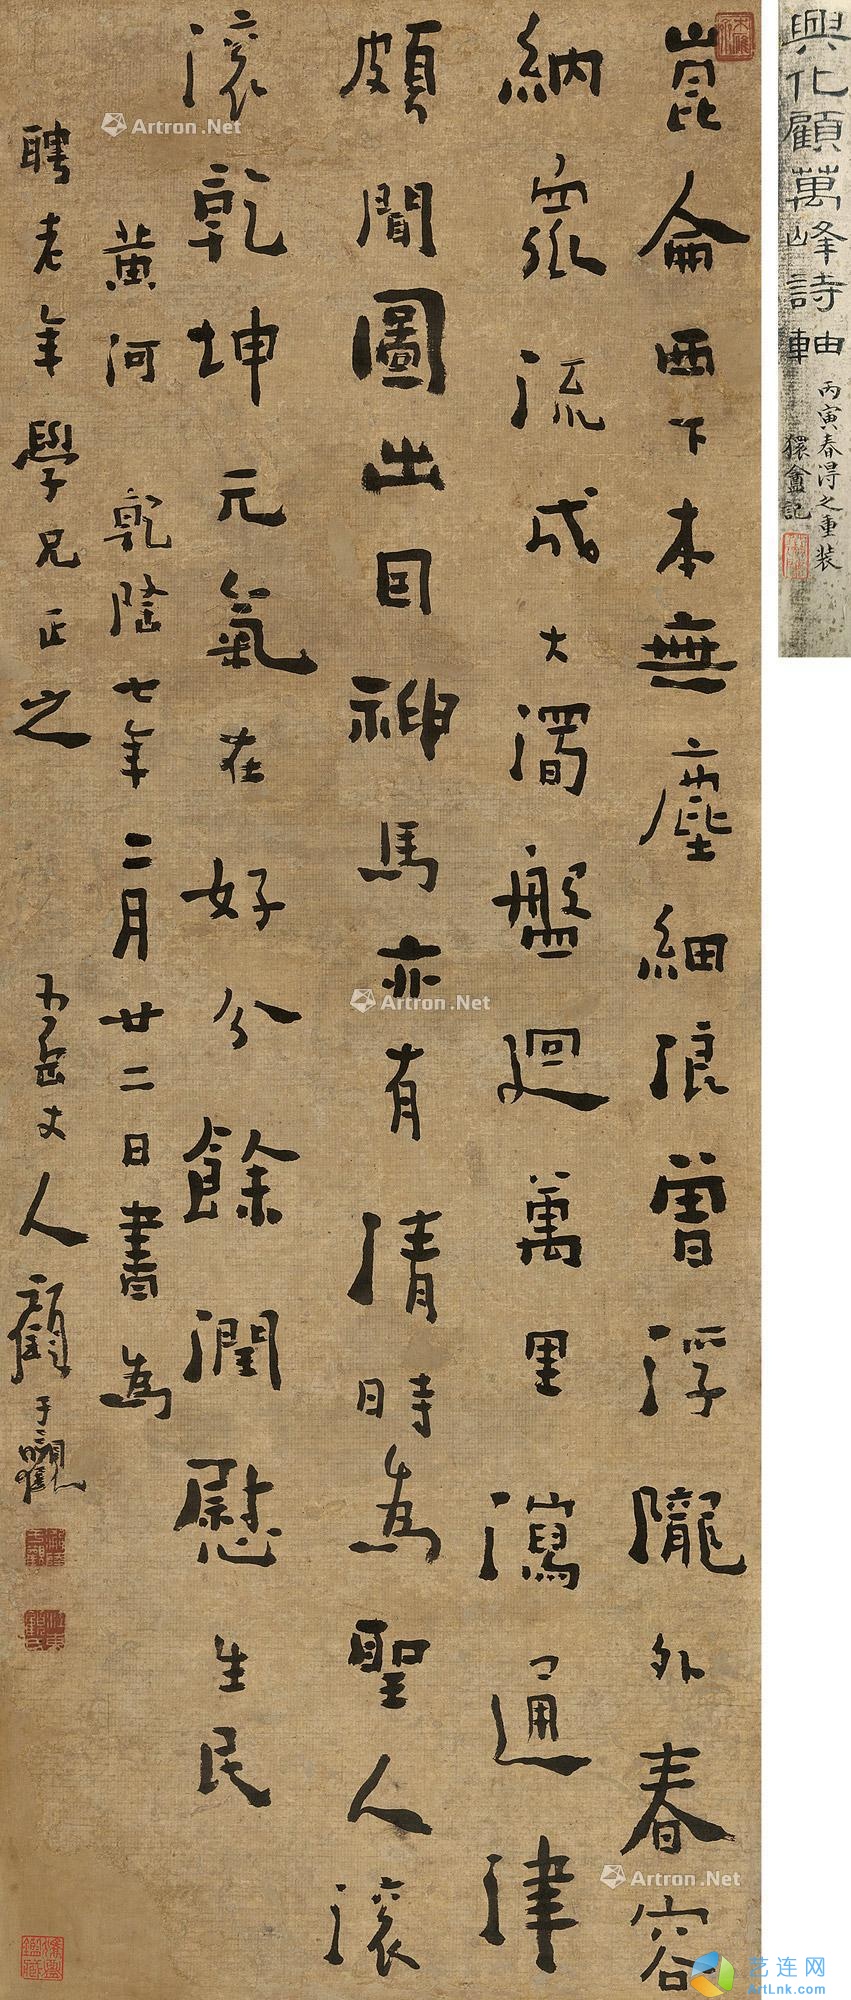 興化顧萬峰詩軸
丙寅春得之重装
獧盦記
崑侖西下本無塵細浪曾浮隴外春容
納衆流成大濁盤迴萬里瀉通津
頗聞圖出囙神馬亦有清時為聖人滚
滚乾坤元氣在好分餘潤慰生民
黄河 乾隆七年二月廿二日書為
聘老年學兄正之 丈人顧于觀
Artron.Net
Artron.Net
Artron.Net
艺连网
ArtLnk.com